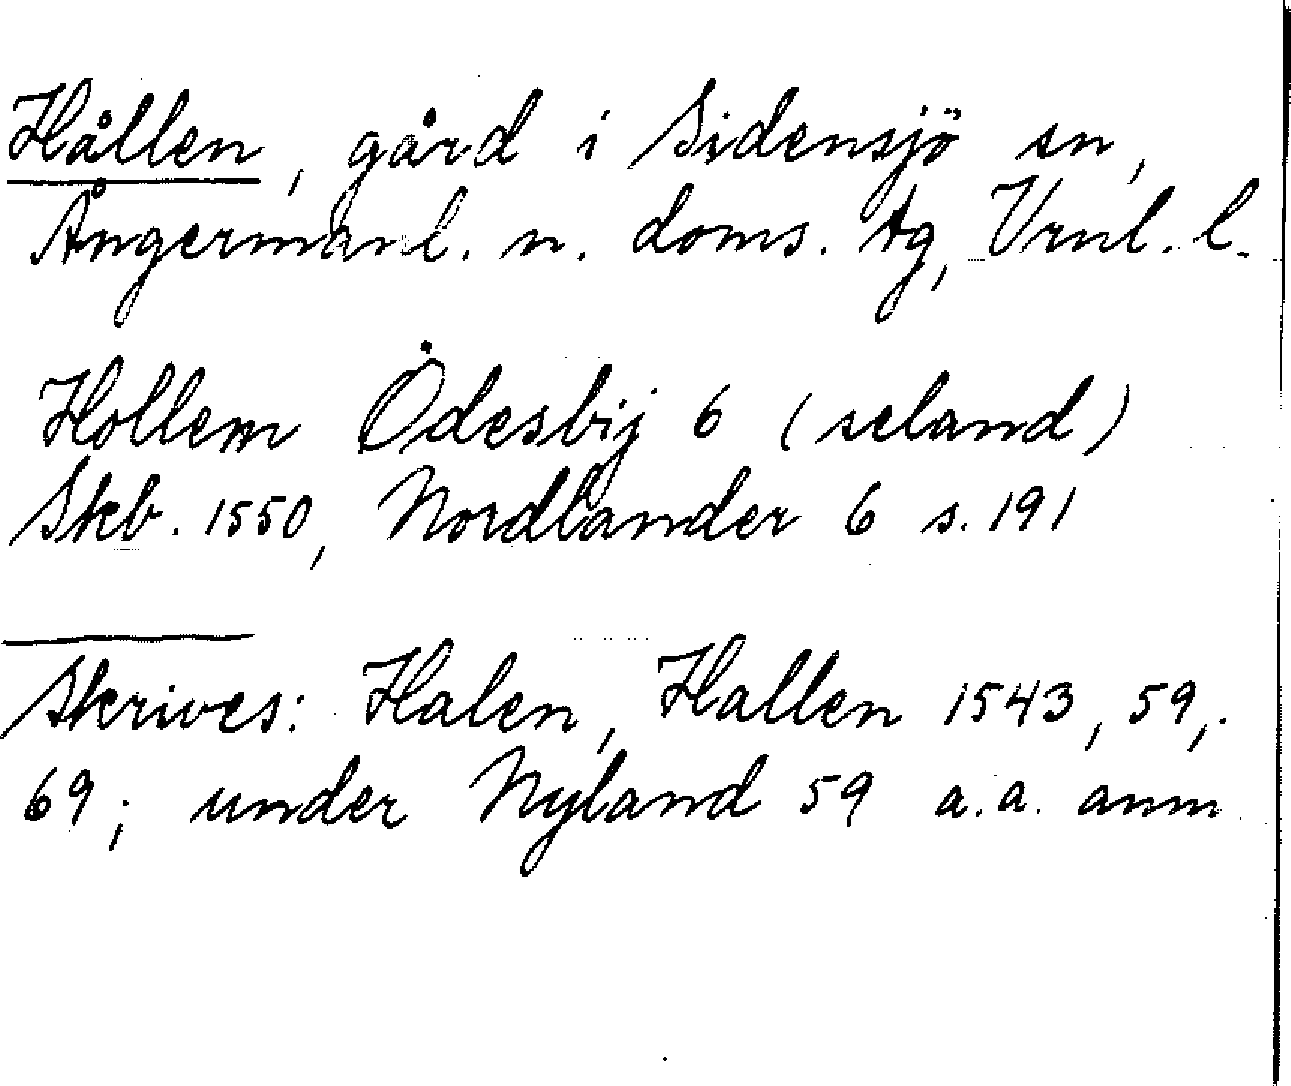 Hållen, gård i Sidensjö sn,
Ångermanl. n. doms. tg, Vrnl. l.
Hollem Ödesbij 6 (seland)
Skb. 1550, Nordlander 6 s. 191
Skrives: Halen, Hallen 1543, 59,
69; under Nyland 59 a.a. anm